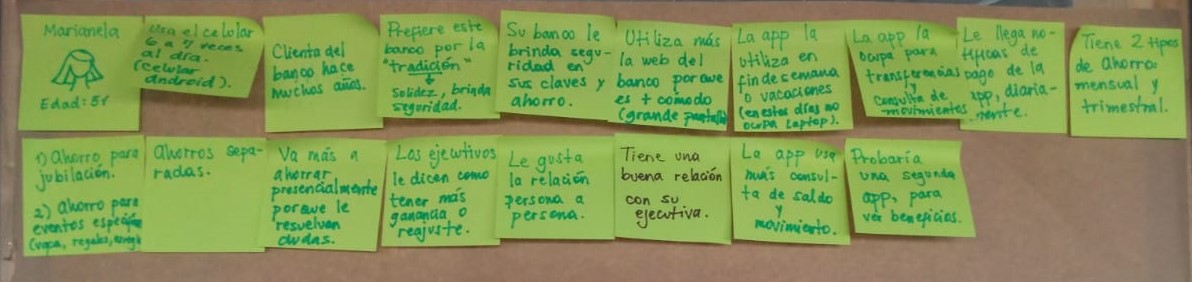 Marianela
Edad: 51
Usa el celular
6 a 7 veces
al día.
(celular
android).
Clienta del
banco hace
muchos años.
Prefiere este
banco por la
"tradición"
solidez, brinda
seguridad.
Su banco le
brinda segu-
ridad en
sus claves y
ahorro.
Utiliza más
la web del
banco porque
es + cómodo
(grande pantalla)
La app la
utiliza en
fin de semana
o vacaciones
(en estos días no
ocupa laptop).
La app la
ocupa para
transferencias
y
consulta de
movimientos.
Le llega no-
tificas de
pago de la
app, diaria-
mente.
Tiene 2 tipos
de ahorro:
mensual y
trimestral.
1) Ahorro para
jubilación.
2) Ahorro para
eventos
(ropa, regalos,
Ahorros sepa-
radas.
Va más a
ahorrar
presencialmente
porque le
resuelven
dudas.
Los ejecutivos
le dicen como
tener más
ganancia o
reajuste.
Le gusta
la relación
persona a
persona.
Tiene una
buena relación
con su
ejecutiva.
La app usa
más consul-
ta de saldo
y
movimiento.
Probaría
una segunda
app, para
ver beneficios.